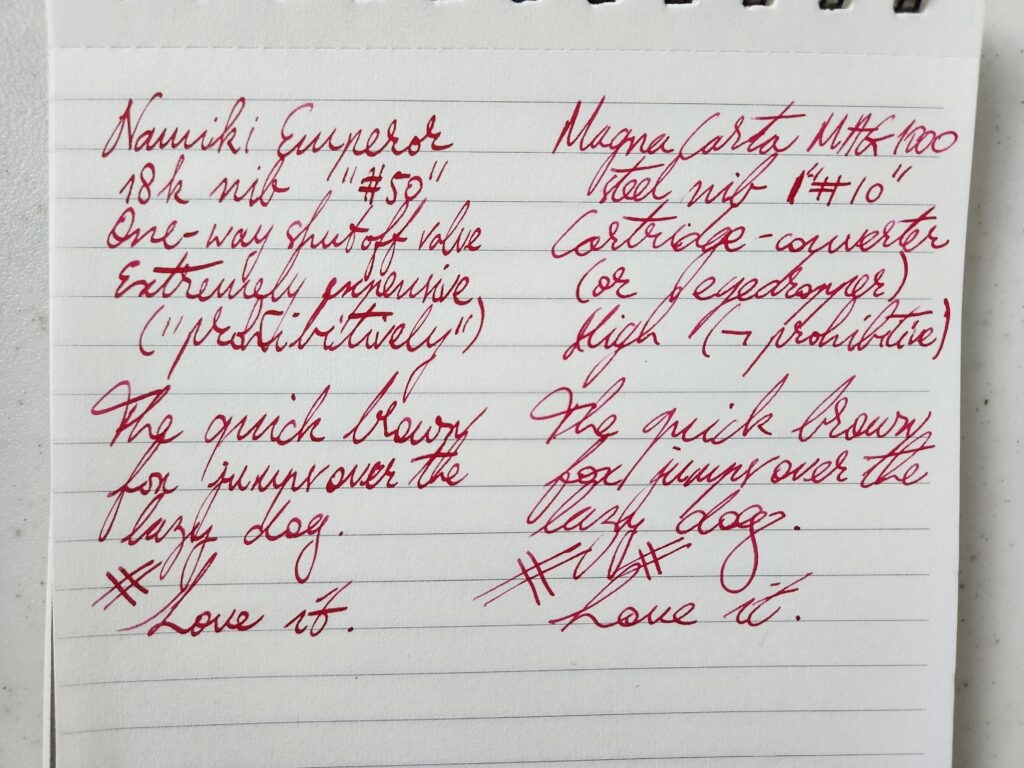 Namiki Emperor
18k nib "#50"
One-way shutoff valve
Extremely expensive
("prohibitively")
The quick brown
fox jumps over the
lazy dog.
#
Love it.
Magna Carta MAG 1000
steel nib "#10"
Cartridge-converter
(or eyedropper)
High (¬ prohibitive)
The quick brown
fox jumps over the
lazy dog.
# #
Love it.